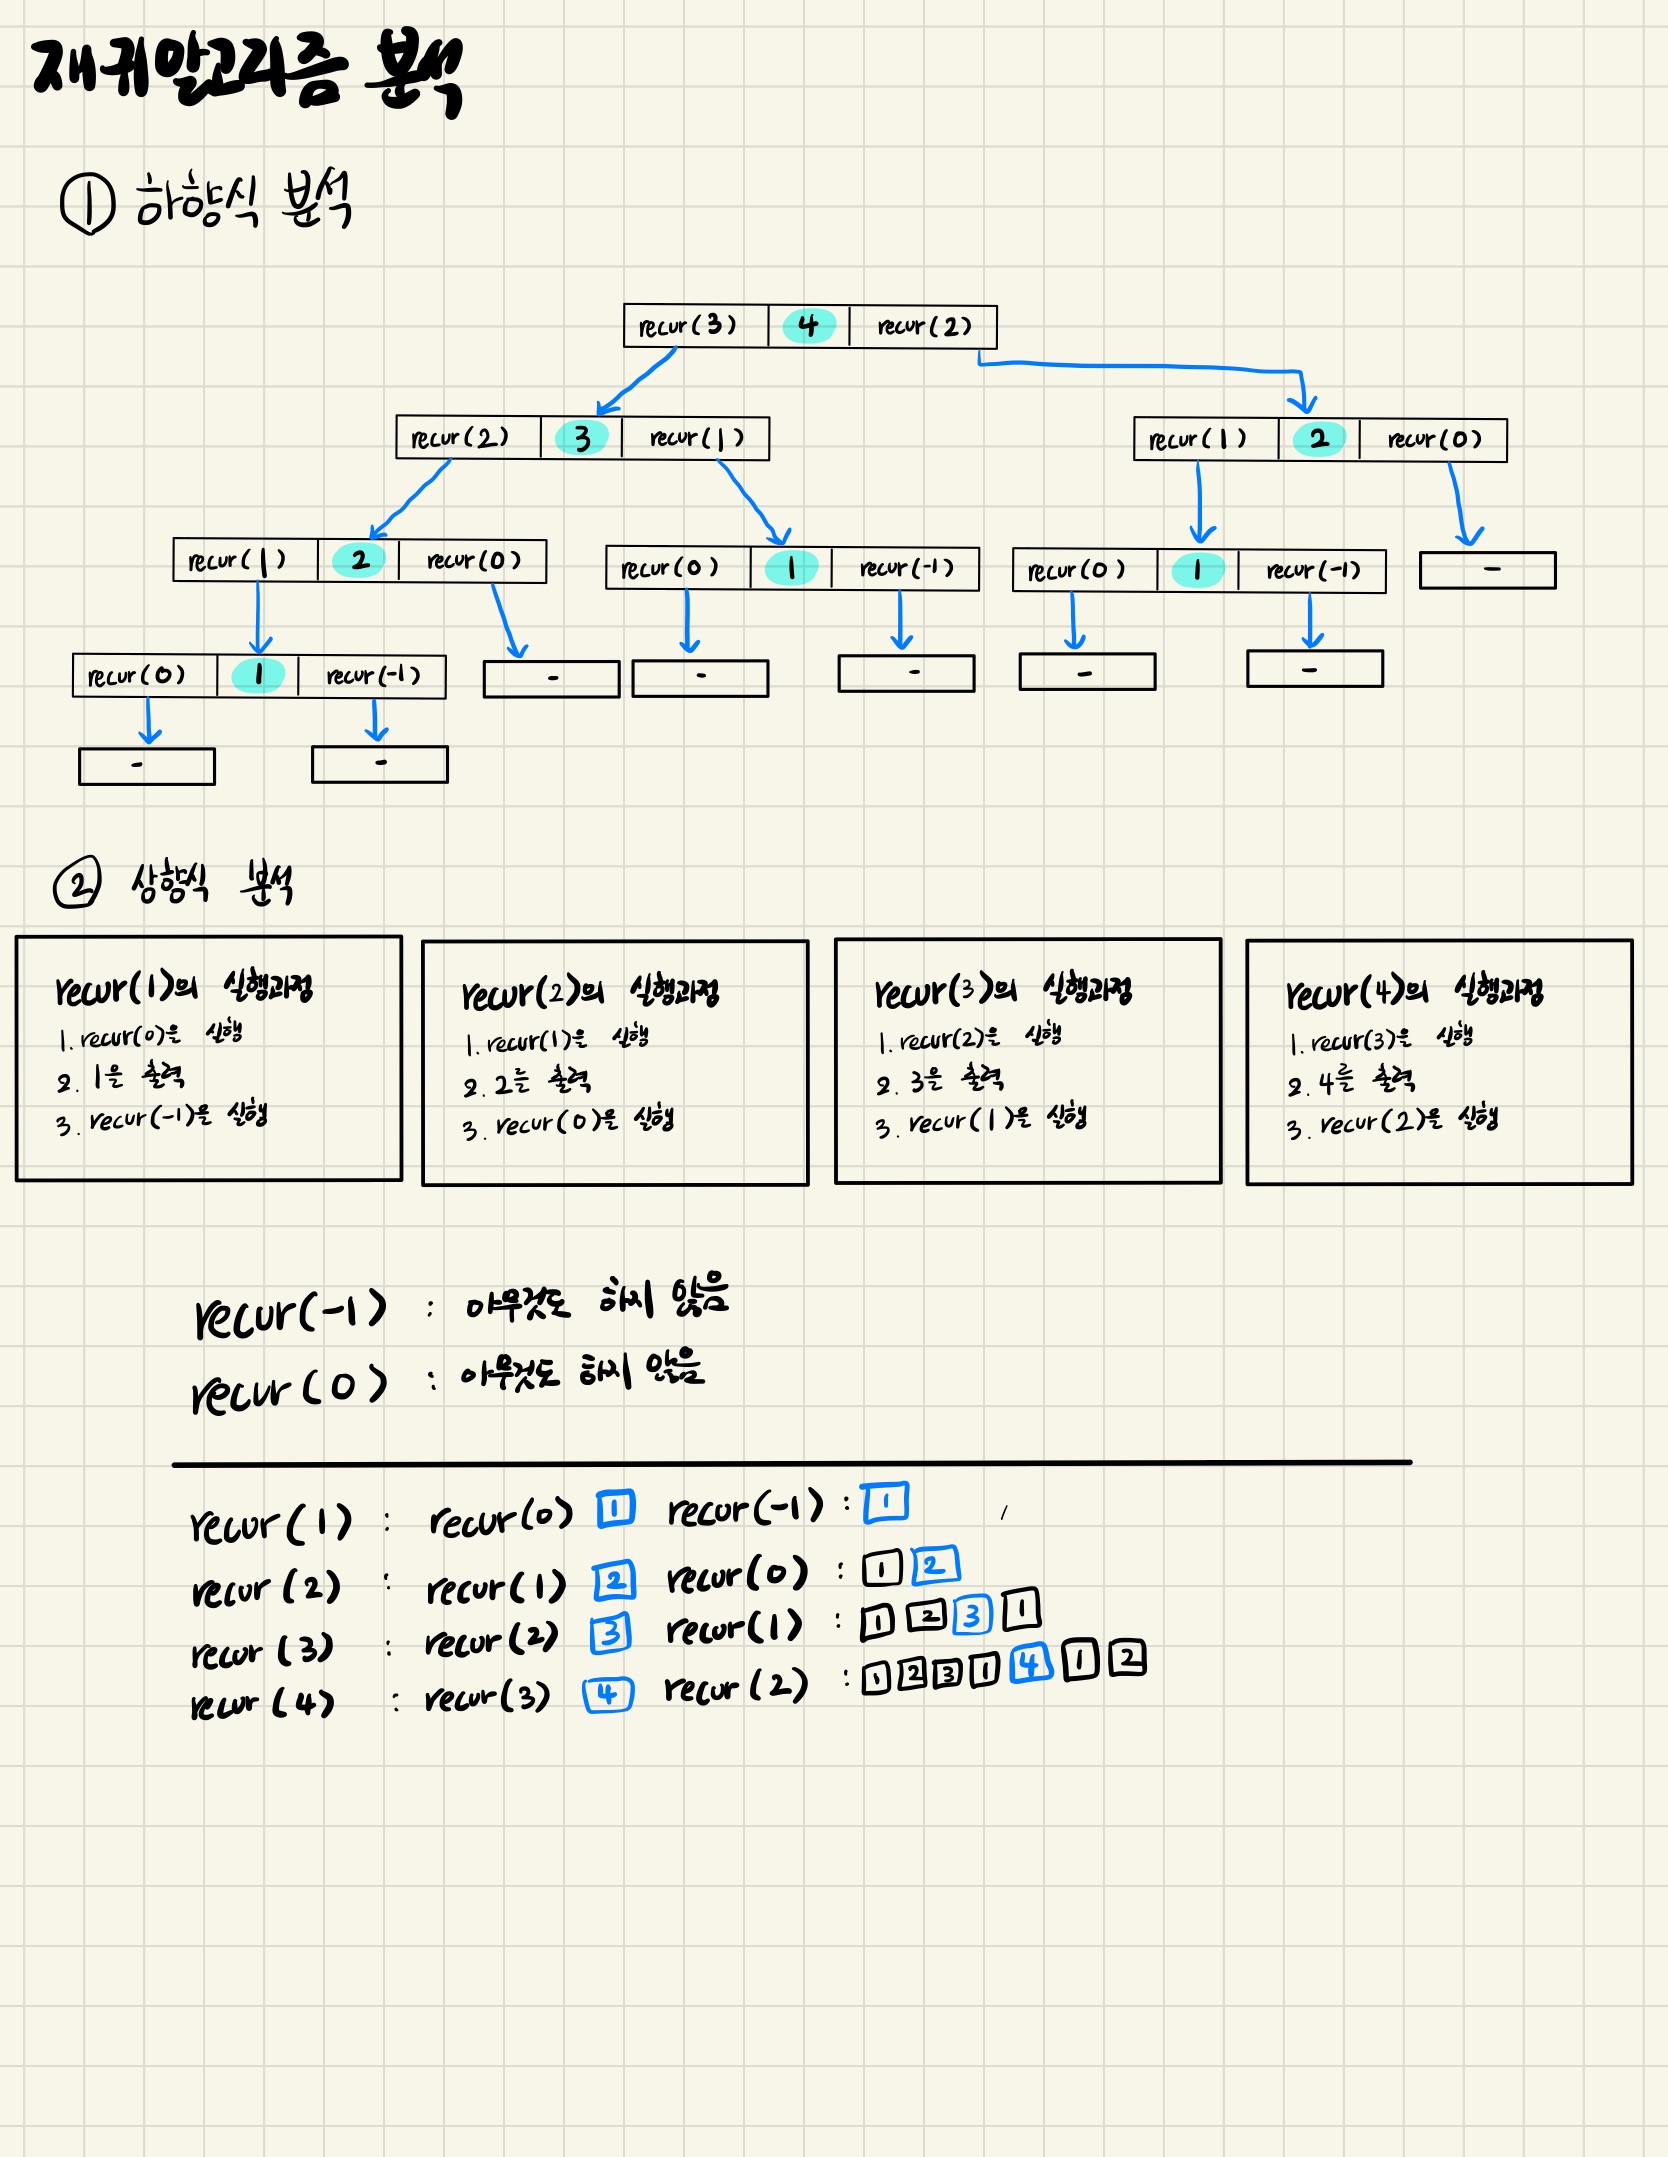 재귀알고리즘 분석
① 하향식 분석
recur(3) 4 recur(2)
recur(2) 3 recur(1) recur(1) 2 recur(0)
recur(1) 2 recur(0) recur(0) 1 recur(-1) recur(0) 1 recur(-1) -
recur(0) 1 recur(-1) - - - - -
- -
② 상향식 분석
recur(1)의 실행과정
1. recur(0)을 실행
2. 1을 출력
3. recur(-1)을 실행
recur(2)의 실행과정
1. recur(1)을 실행
2. 2를 출력
3. recur(0)을 실행
recur(3)의 실행과정
1. recur(2)을 실행
2. 3을 출력
3. recur(1)을 실행
recur(4)의 실행과정
1. recur(3)을 실행
2. 4를 출력
3. recur(2)을 실행
recur(-1) : 아무것도 하지 않음
recur(0) : 아무것도 하지 않음
recur(1) : recur(0) 1 recur(-1) : 1
recur(2) : recur(1) 2 recur(0) : 1 2
recur(3) : recur(2) 3 recur(1) : 1 2 3 1
recur(4) : recur(3) 4 recur(2) : 1 2 3 1 4 1 2